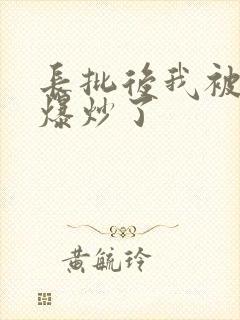 長批後我被
爆炒了
黃毓玲